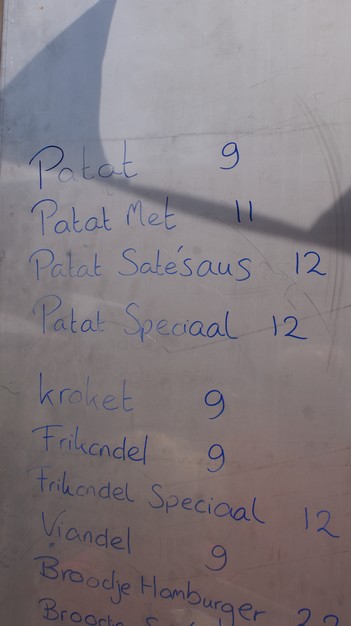 Patat 9
Patat Met 11
Patat Satésaus 12
Patat Speciaal 12
kroket 9
Frikandel 9
Frikandel Speciaal 12
Viandel 9
Broodje Hamburger 22
Broodje